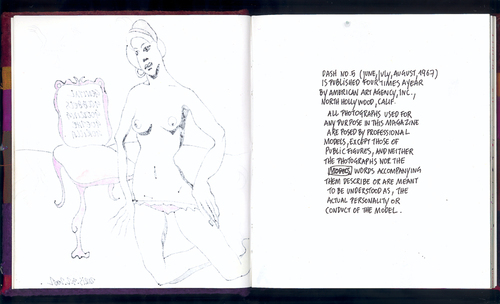 DASH NO. 5 (JUNE, JULY, AUGUST, 1967)
IS PUBLISHED FOUR TIMES A YEAR
BY AMERICAN ART AGENCY, INC.,
NORTH HOLLYWOOD, CALIF.
ALL PHOTOGRAPHS USED FOR
ANY PURPOSE IN THIS MAGAZINE
ARE POSED BY PROFESSIONAL
MODELS, EXCEPT THOSE OF
PUBLIC FIGURES, AND NEITHER
THE PHOTOGRAPHS NOR THE
WORDS ACCOMPANYING
THEM DESCRIBE OR ARE MEANT
TO BE UNDERSTOOD AS, THE
ACTUAL PERSONALITY OR
CONDUCT OF THE MODEL.